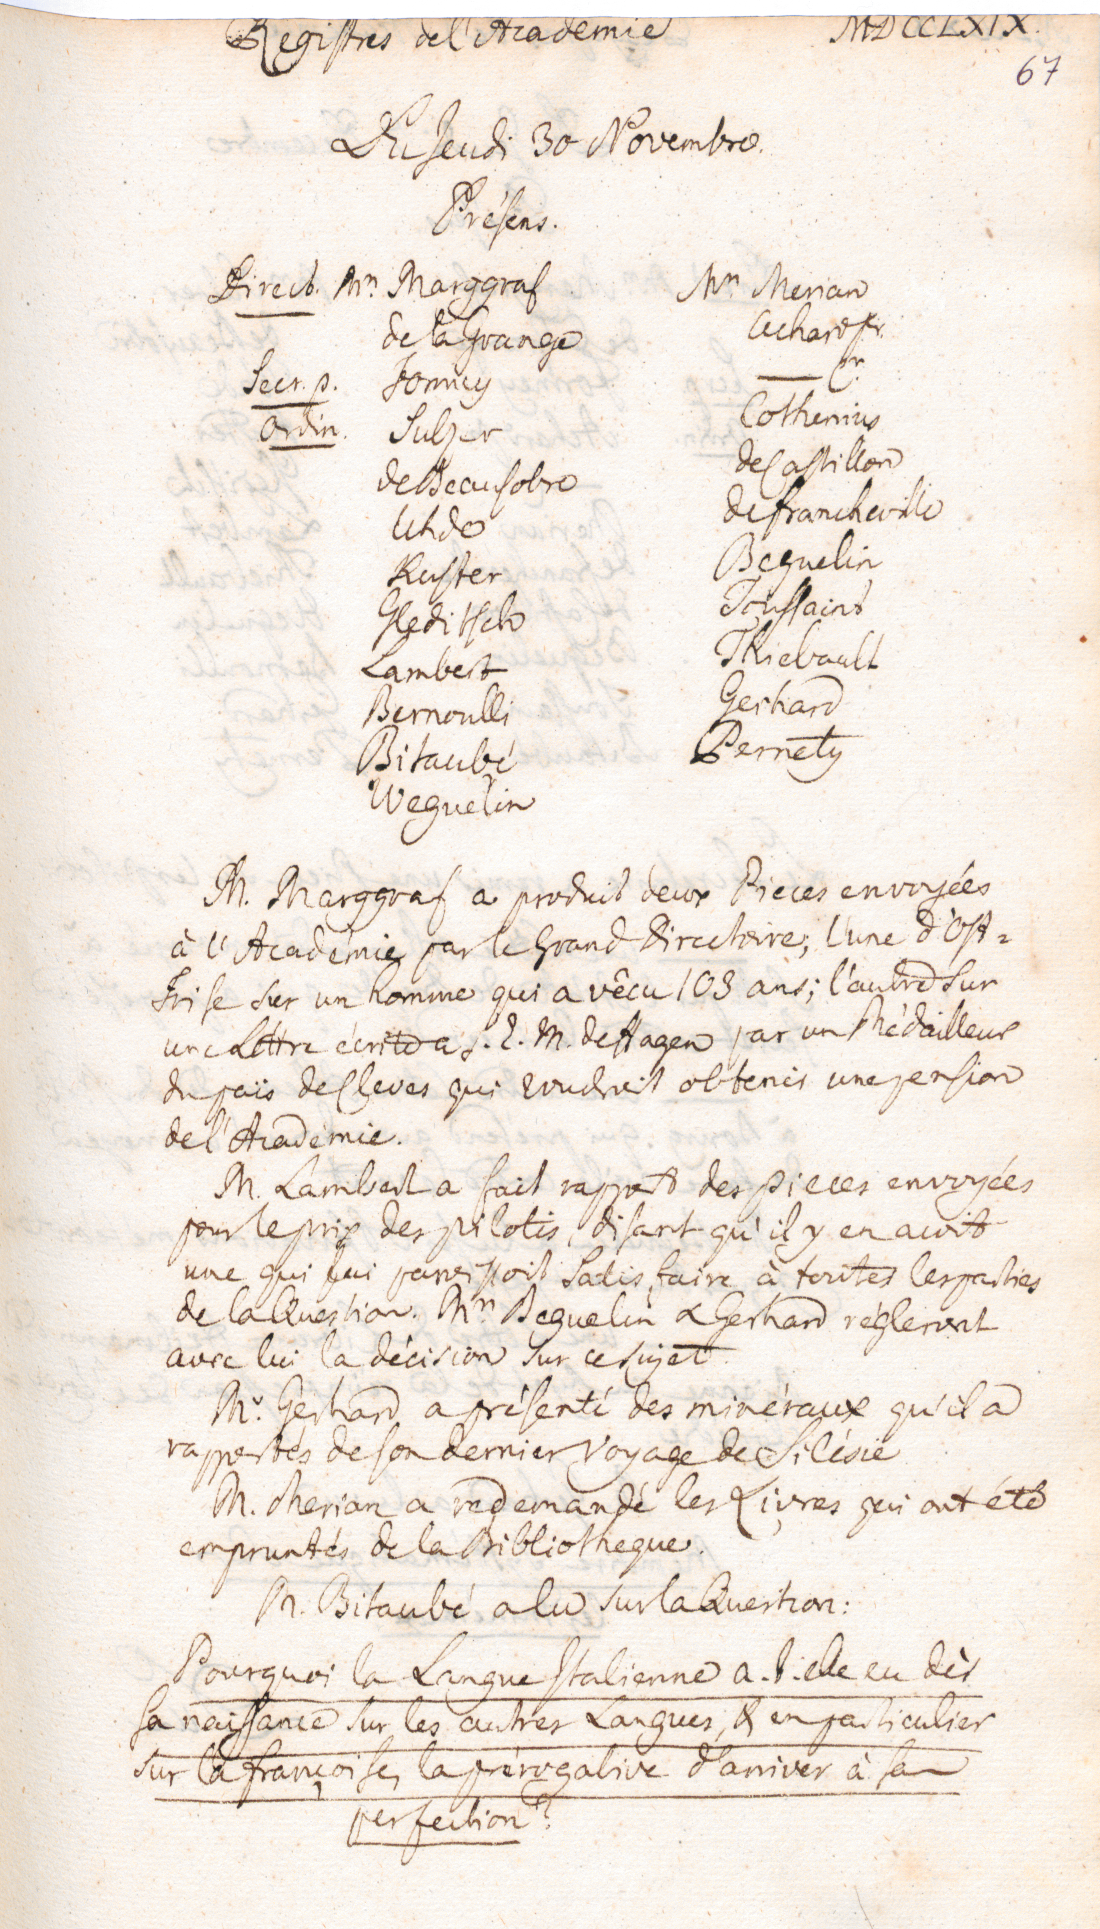 Registres de l'Academie MDCCLXIX.
67
Du Jeudi 30 Novembre.
Présens.
Direct. Mrs Marggraf
de la Grange
Secr. p. Formey
Ordin. Sulzer
de Beausobre
Uhde
Kuster
Gleditsch
Lambert
Bernoulli
Bitaubé
Weguelin
Mrs Merian
Achard fr.
— pr.
Cothenius
de Castillon
de francheville
Beguelin
Toussaint
Thiebault
Gerhard
Pernety
M. Marggraf a produit deux Pieces envoyées
à l'Academie par le Grand Directoire; l'une d'Ost=
frise sur un homme qui a vêcu 103 ans; l'autre sur
une Lettre écrite a S. E. M. de Hagen par un Médailleur
du païs de Cleves qui voudroit obtenir une pension
de l'Academie.
M. Lambert a fait rapport des pieces envoyées
pour le prix des pilotis, disant qu'il y en avoit
une qui lui paroissoit satisfaire à toutes les parties
de la Question. Mrs Beguelin & Gerhard régleront
avec lui la décision sur ce sujet.
Mr. Gerhard a présenté des minéraux qu'il a
rapportés de son dernier Voyage de Silésie
M. Merian a redemandé les Livres qui ont été
empruntés de la Bibliotheque.
M. Bitaubé a lu sur la Question:
Pourquoi la Langue Italienne a-t-elle eu dès
sa naissance sur les autres Langues, & en particulier
sur la françoise, la prérogative d'arriver à sa
perfection?